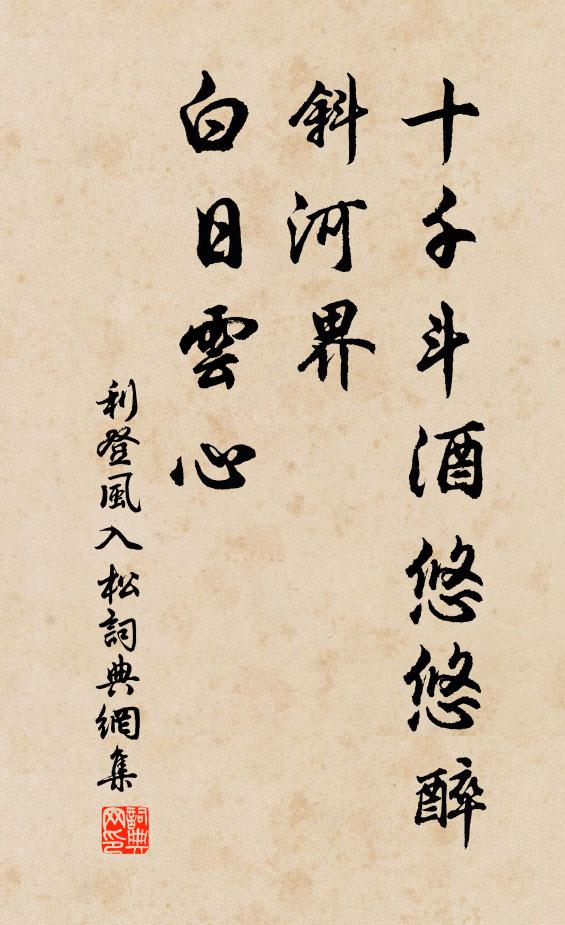 十千斗酒悠悠醉
斜河界
白日雲心
利登風入松詞典網集
詞典网印